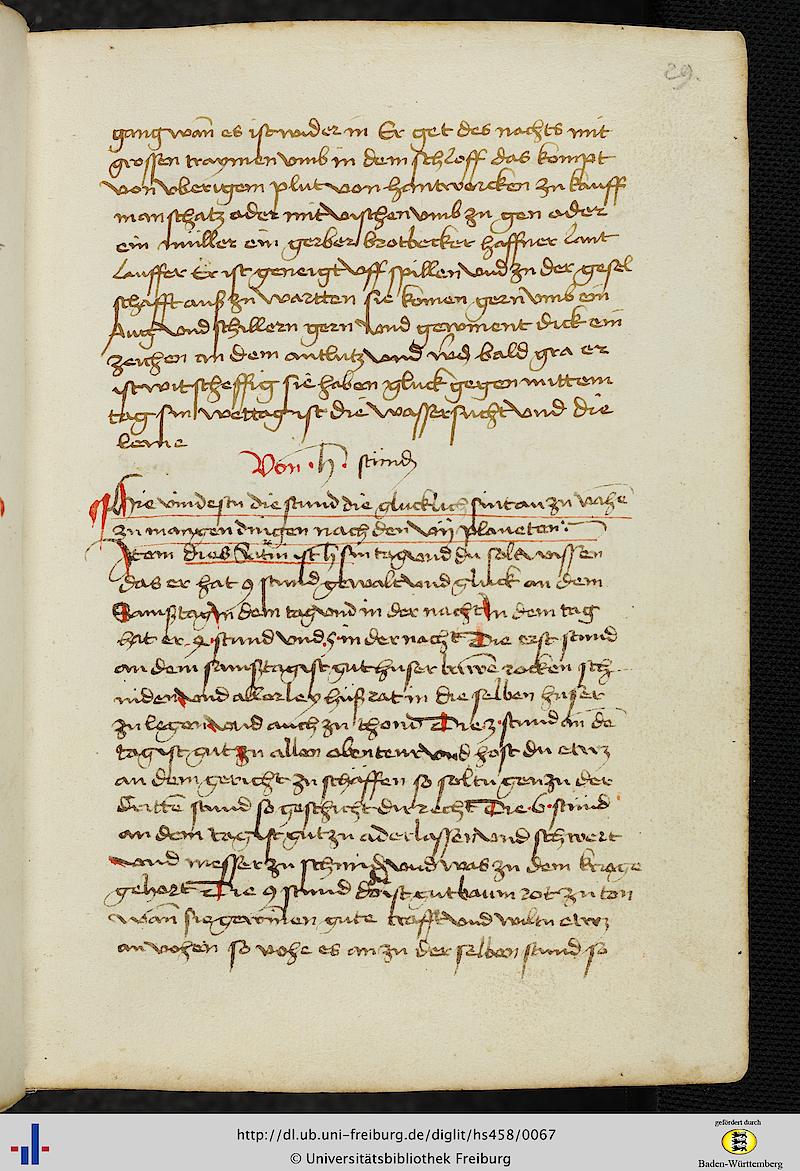 29.
gang wan̄ es ist wider in Er get des nachts mit
grossen traymen vmb in dem schloff das kompt
von vberigem plut von hantwercken zu kauff
manschatz oder mit vischen vmb zu gen oder
ein müller ein gerber brotbecker haffner lant
lauffer Er ist geneigt vff spillen vnd zu der gesel
schafft auß zu wartten sie komen gern vmb ein
Aug vnd schillern gern vnd gewinent dick ein
zeichen an dem antlutz vnd bald gra er
ist witscheffig sie haben gluck gegen mittem
tag sin wettag ist die wassersucht vnd die
leme
Von · ♄ · stund
Hie vindestu die stund die glucklich sint an zu vahē
zu mangen dingen nach den vij planeten
Item dies ist ♄ sin tag vnd du solt wissen
das er hat 9 stund gewalt vnd gluck an dem
Samßtag in dem tag vnd in der nacht In dem tag
hat er 4 stund vnd 5 in der nacht Die erst stund
an dem samßtag ist gut huser bawē rocken sch
niden vnd allerley hußrat in die selben huser
zu legen vnd auch zu thond Die 2 stund an dē
tag ist gut zu allen obentewr vnd host du etwz
an dem gericht zu schaffen so soltu gen zu der
dritten stund so geschicht dir recht Die 6 stund
an dem tag ist gut zu aderlassen vnd schwert
vnd messer zu schmid vnd was zu dem krige
gehort Die 9 stund ist gut baum zu
wan̄ sie gewinen gute krafft vnd wiltu etwz
an vohen so vohe es an zu der selben stund so
http://dl.ub.uni-freiburg.de/diglit/hs458/0067
© Universitätsbibliothek Freiburg
gefördert durch
Baden-Württemberg